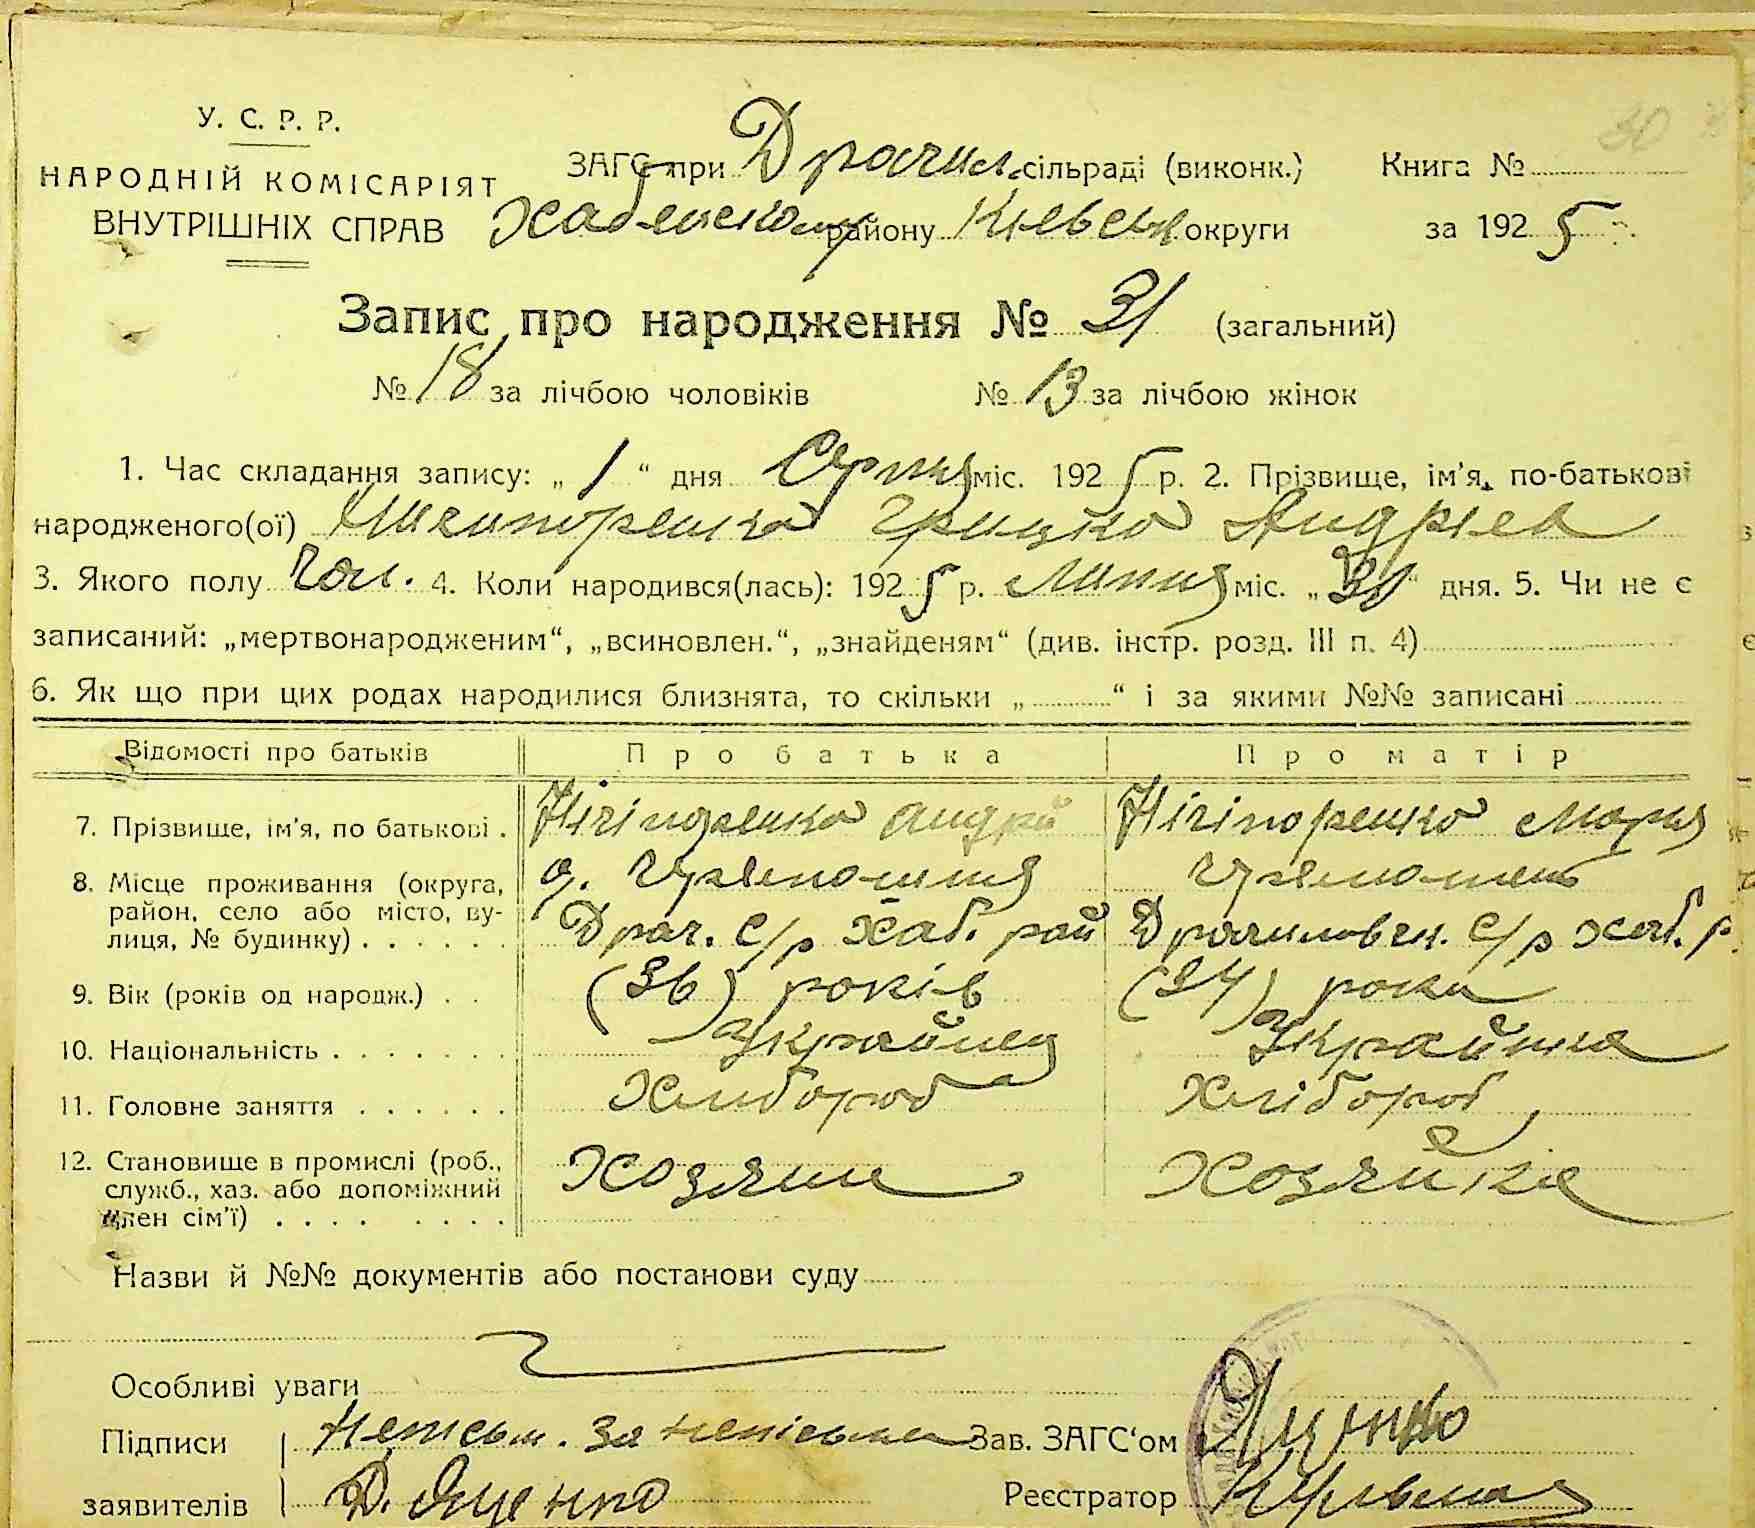 У. С. Р. Р.
НАРОДНІЙ КОМІСАРІЯТ
ВНУТРІШНІХ СПРАВ
ЗАГС при Драчил. сільраді (виконк.)
Хабенском району Київськ округи
Книга №
30
за 1925
Запис про народження № 31 (загальний)
№ 18 за лічбою чоловіків № 13 за лічбою жінок
1. Час складання запису: „ 1 “ дня Серпня міс. 1925 р. 2. Прізвище, ім'я, по-батькові
народженого(ої) Ничипоренко Грицко Андріев
3. Якого полу Чол. 4. Коли народився(лась): 1925 р. Липня міс. „ “ дня. 5. Чи не є
записаний: „мертвонародженим“, „всиновлен.“, „знайденям“ (див. інстр. розд. III п. 4)
6. Як що при цих родах народилися близнята, то скільки „ “ і за якими №№ записані
Відомості про батьків Про батька Про матір
7. Прізвище, ім'я, по батькові . Нічіпоренко Андрій Нічіпоренко Мария
8. Місце проживання (округа, район, село або місто, вулиця, № будинку) . . . . . .
Драч. С/р Хаб. рай Драчиловск. С/р Хаб. р.
9. Вік (років од народж.) . . (36) років (34) роки
10. Національність . . . . . . . Украйнец Украйнка
11. Головне заняття . . . . . . Хлибороб Хлібороб
12. Становище в промислі (роб., служб., хаз. або допоміжний член сім'ї) . . . . . . . . Хозяин Хозяйка
Назви й №№ документів або постанови суду
Особливі уваги
Підписи Неписьм. За
заявителів Д. Яценко
Зав. ЗАГС'ом Яценко
Реєстратор